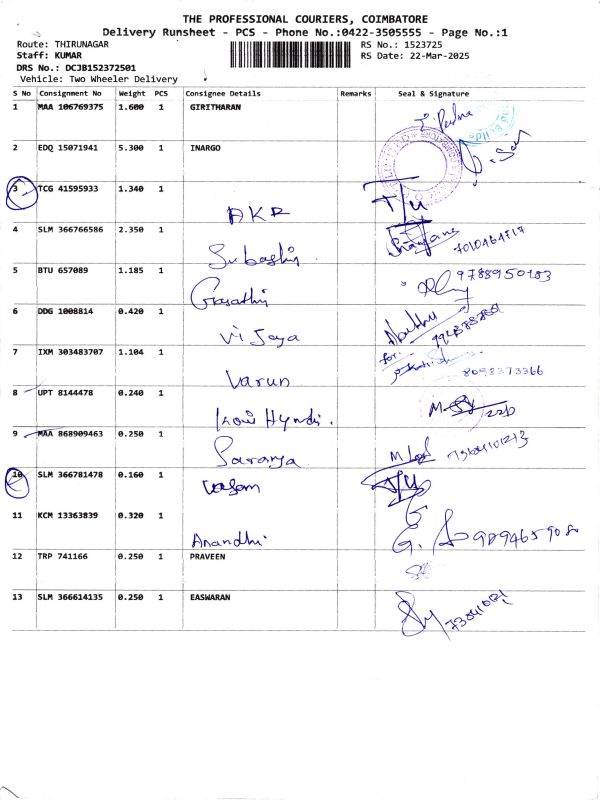 THE PROFESSIONAL COURIERS, COIMBATORE
Delivery Runsheet - PCS - Phone No.:0422-3505555 - Page No.:1
Route: THIRUNAGAR RS No.: 1523725
Staff: KUMAR RS Date: 22-Mar-2025
DRS No.: DCJB152372501
Vehicle: Two Wheeler Delivery
S No Consignment No Weight PCS Consignee Details Remarks Seal & Signature
1 MAA 106769375 1.600 1 GIRITHARAN
2 EDQ 15071941 5.300 1 INARGO
3 TCG 41595933 1.340 1
AKR
4 SLM 366766586 2.350 1
Subashin
5 BTU 657089 1.185 1 9788950183
6 DDG 1008814 0.420 1
Vijaya
7 IXM 303483707 1.104 1 for.
Varun 8098273366
8 UPT 8144478 0.240 1
9 MAA 868909463 0.250 1
Saranya
10 SLM 366781478 0.160 1
11 KCM 13363839 0.320 1
Anandhi
12 TRP 741166 0.250 1 PRAVEEN
13 SLM 366614135 0.250 1 EASWARAN